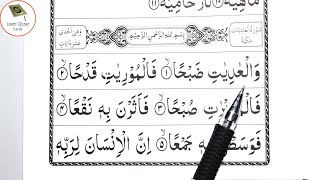 Learn Quran Easily
مَاهِيَهْ ۝١٠ نَارٌ حَامِيَةٌ ۝١١
بِسْمِ اللّٰهِ الرَّحْمٰنِ الرَّحِيْمِ
وَالْعٰدِيٰتِ ضَبْحًا ۝١ فَالْمُوْرِيٰتِ قَدْحًا ۝٢
فَالْمُغِيْرٰتِ صُبْحًا ۝٣ فَاَثَرْنَ بِهٖ نَقْعًا ۝٤
فَوَسَطْنَ بِهٖ جَمْعًا ۝٥ اِنَّ الْاِنْسَانَ لِرَبِّهٖ